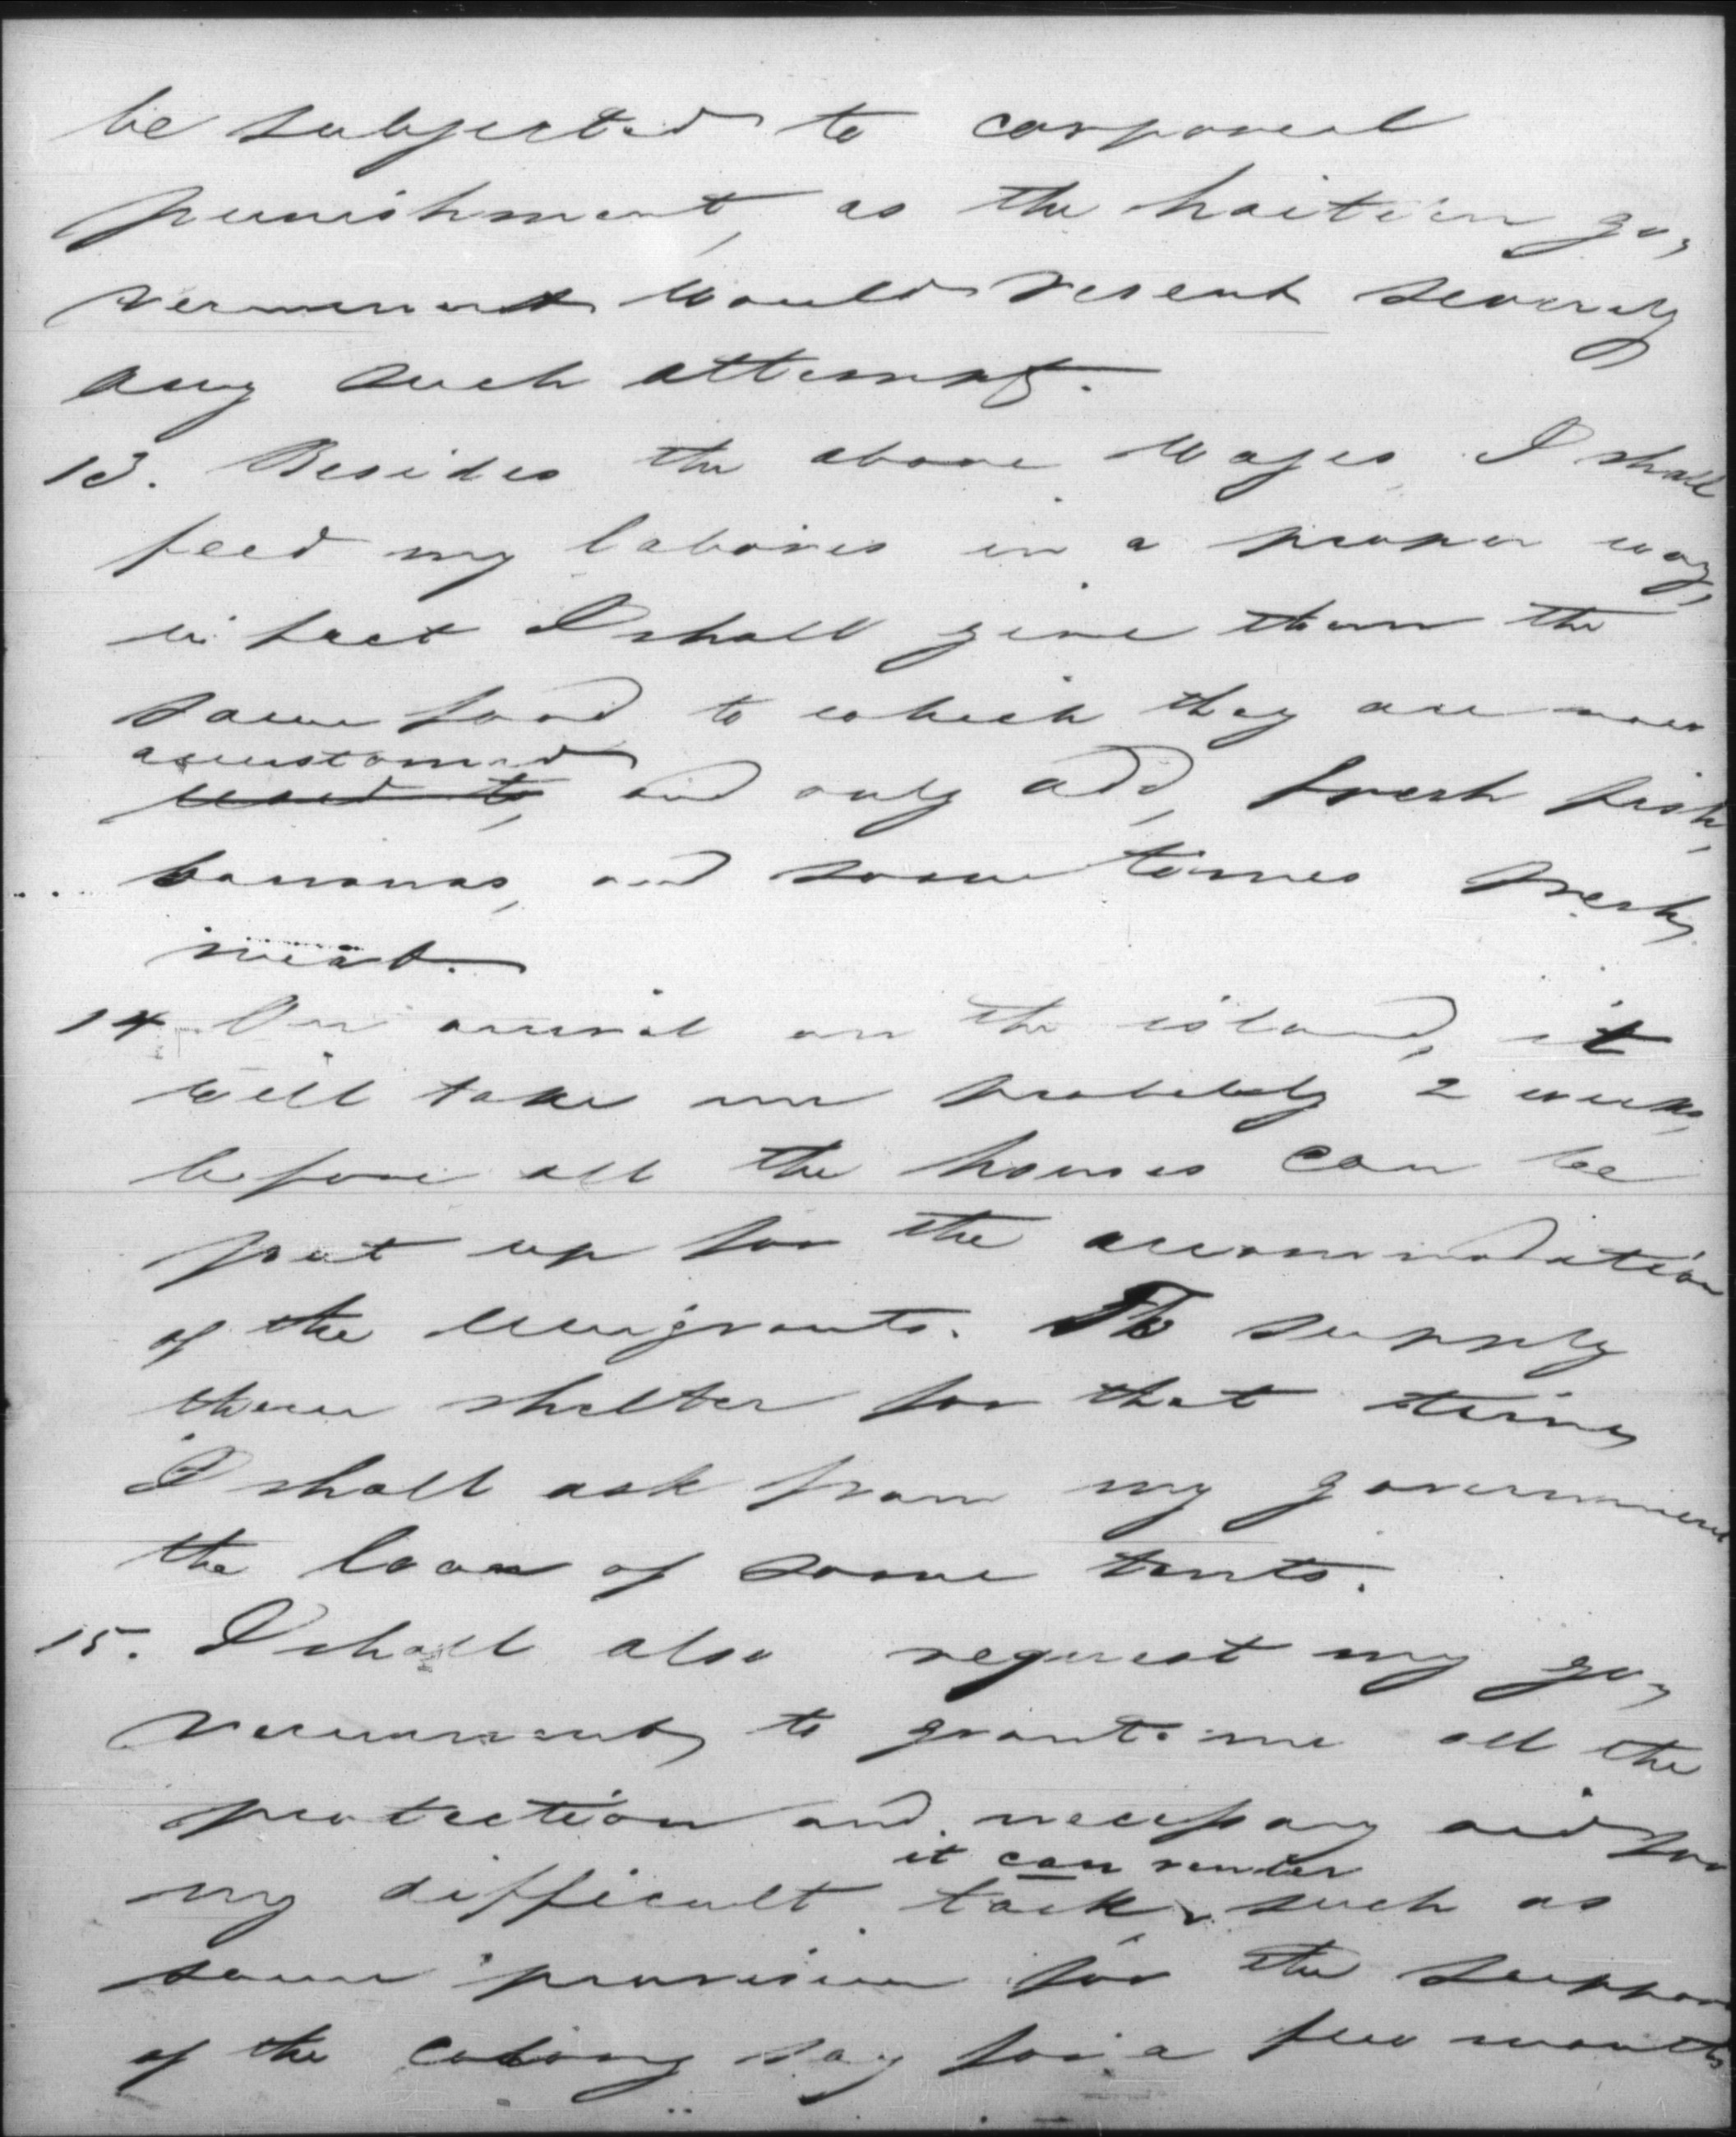 be subjected to corporeal
punishment, as the haitian go-
vernment would resent severely
any such attempt.
13. Besides the above wages, I shall
feed my labores in a proper way,
in fact I shall give them the
same food to which they are now
accustomed
used to, and only add, fresh fish,
bananas, and some times fresh
meat.
14. On arrival on the island, it
will take me probably 2 weeks,
before all the houses can be
put up for the accommodation
of the emigrants. To supply
them shelter for that time,
I shall ask from my government
the loan of some tents.
15. I shall also request my go-
vernment, to grant me all the
protection and necessary aid for
it can render
my difficult task, such as
some provision for the support
of the colony say for a few months